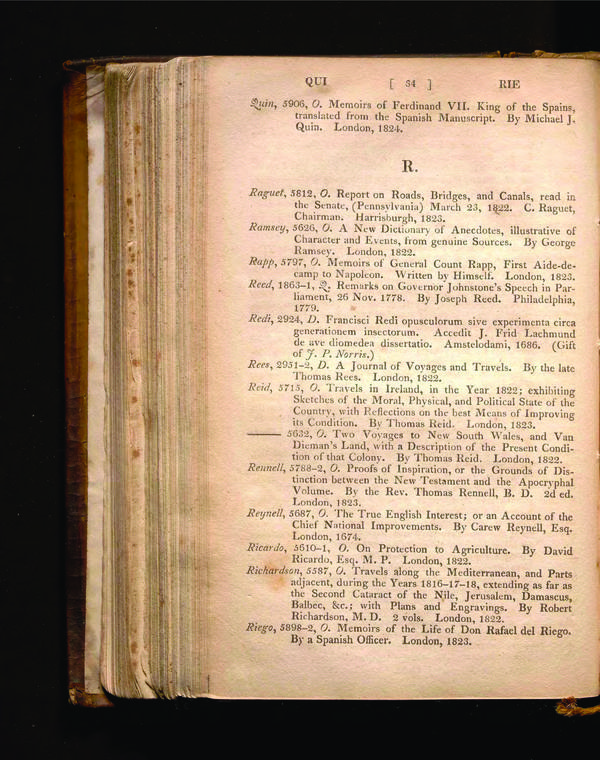 QUI [ 54 ] RIE
Quin, 5906, O. Memoirs of Ferdinand VII. King of the Spains,
translated from the Spanish Manuscript. By Michael J.
Quin. London, 1824.
R.
Raguet, 5812, O. Report on Roads, Bridges, and Canals, read in
the Senate, (Pennsylvania) March 23, 1822. C. Raguet,
Chairman. Harrisburgh, 1823.
Ramsey, 5626, O. A New Dictionary of Anecdotes, illustrative of
Character and Events, from genuine Sources. By George
Ramsey. London, 1822.
Rapp, 5797, O. Memoirs of General Count Rapp, First Aide-de-
camp to Napoleon. Written by Himself. London, 1823.
Reed, 1863-1, Q. Remarks on Governor Johnstone's Speech in Par-
liament, 26 Nov. 1778. By Joseph Reed. Philadelphia,
1779.
Redi, 2924, D. Francisci Redi opusculorum sive experimenta circa
generationem insectorum. Accedit J. Frid Lachmund
de ave diomedea dissertatio. Amstelodami, 1686. (Gift
of J. P. Norris.)
Rees, 2951-2, D. A Journal of Voyages and Travels. By the late
Thomas Rees. London, 1822.
Reid, 5715, O. Travels in Ireland, in the Year 1822; exhibiting
Sketches of the Moral, Physical, and Political State of the
Country, with Reflections on the best Means of Improving
its Condition. By Thomas Reid. London, 1823.
——— 5632, O. Two Voyages to New South Wales, and Van
Dieman's Land, with a Description of the Present Condi-
tion of that Colony. By Thomas Reid. London, 1822.
Rennell, 5788-2, O. Proofs of Inspiration, or the Grounds of Dis-
tinction between the New Testament and the Apocryphal
Volume. By the Rev. Thomas Rennell, B. D. 2d ed.
London, 1823.
Reynell, 5687, O. The True English Interest; or an Account of the
Chief National Improvements. By Carew Reynell, Esq.
London, 1674.
Ricardo, 5610-1, O. On Protection to Agriculture. By David
Ricardo, Esq. M. P. London, 1822.
Richardson, 5587, O. Travels along the Mediterranean, and Parts
adjacent, during the Years 1816-17-18, extending as far as
the Second Cataract of the Nile, Jerusalem, Damascus,
Balbec, &c.; with Plans and Engravings. By Robert
Richardson, M. D. 2 vols. London, 1822.
Riego, 5898-2, O. Memoirs of the Life of Don Rafael del Riego.
By a Spanish Officer. London, 1823.